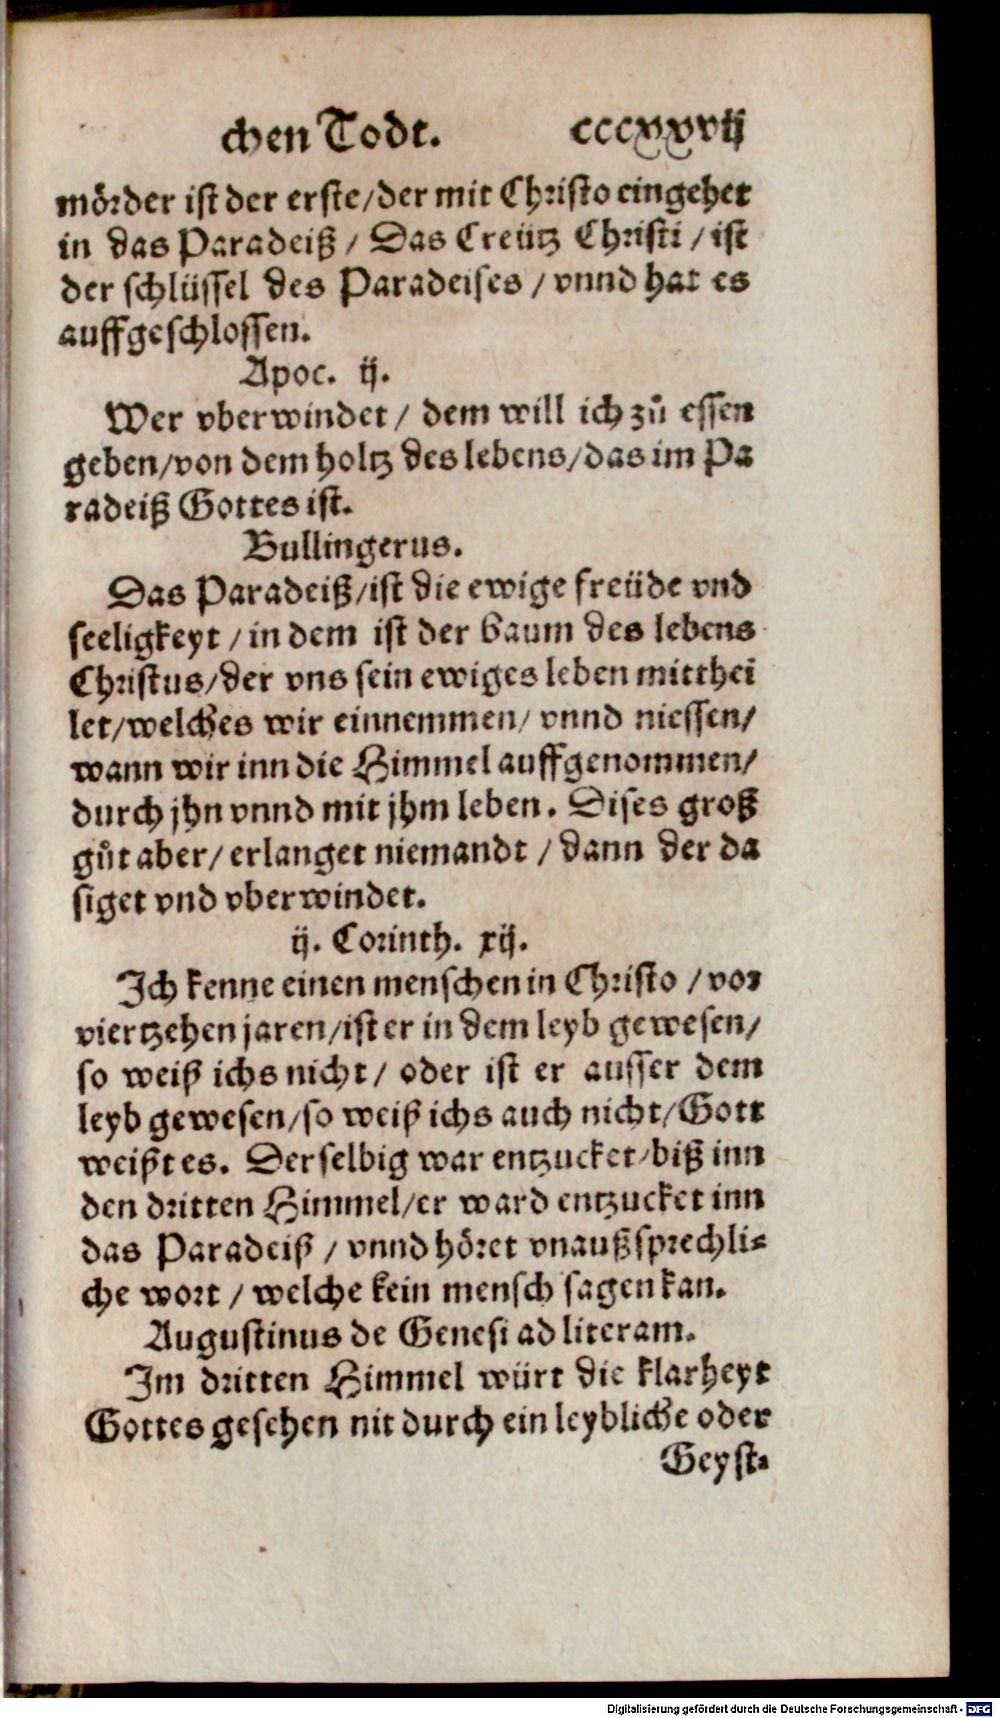 chen Todt. cccxxvij
mörder ist der erste/der mit Christo eingehet
in das Paradeiß / Das Creütz Christi / ist
der schlüssel des Paradeises / vnnd hat es
auffgeschlossen.
Apoc. ij.
Wer vberwindet / dem will ich zů essen
geben/von dem holtz des lebens/das im Pa
radeiß Gottes ist.
Bullingerus.
Das Paradeiß/ist die ewige freüde vnd
seeligkeyt / in dem ist der baum des lebens
Christus/der vns sein ewiges leben mitthei
let/welches wir einnemmen/ vnnd niessen/
wann wir inn die Himmel auffgenommen/
durch jhn vnnd mit jhm leben. Dises groß
gůt aber/ erlanget niemandt / dann der da
siget vnd vberwindet.
ij. Corinth. xij.
Ich kenne einen menschen in Christo / vor
viertzehen jaren/ist er in dem leyb gewesen/
so weiß ichs nicht / oder ist er ausser dem
leyb gewesen/so weiß ichs auch nicht/Gott
weißt es. Derselbig war entzucket/biß inn
den dritten Himmel/er ward entzucket inn
das Paradeiß / vnnd höret vnaußsprechli⸗
che wort / welche kein mensch sagen kan.
Augustinus de Genesi ad literam.
Im dritten Himmel würt die klarheyt
Gottes gesehen nit durch ein leybliche oder
Geyst⸗
Digitalisierung gefördert durch die Deutsche Forschungsgemeinschaft - DFG